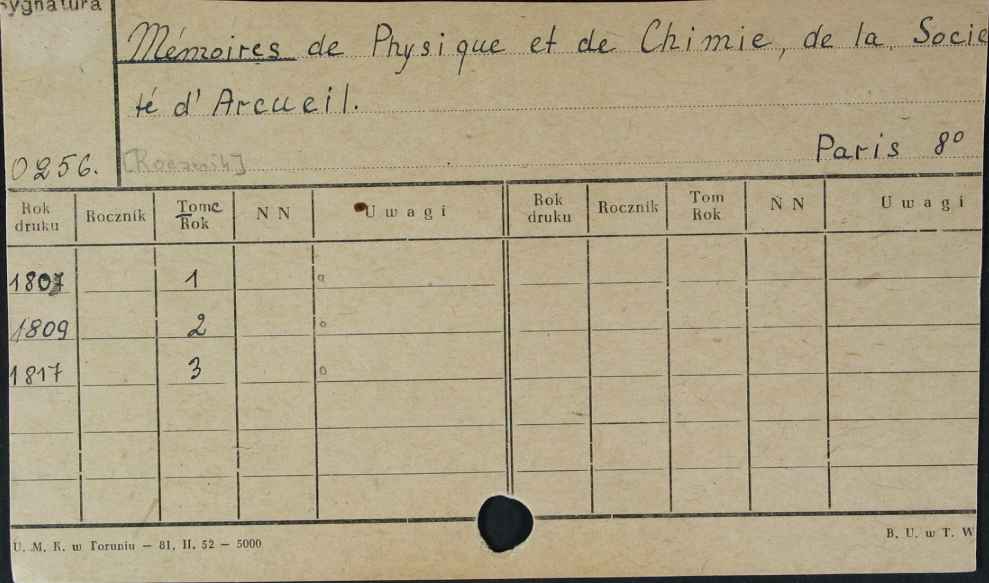 Sygnatura
Mémoires de Physique et de Chimie, de la Socie
té d'Arcueil.
0256. [Rocznik] Paris 8º
Rok druku Rocznik Tome Rok N N Uwagi Rok druku Rocznik Tom Rok N N Uwagi
1807 1 o
1809 2 o
1817 3 o
U. M. K. w Toruniu — 81. II. 52 — 5000 B. U. w T. W